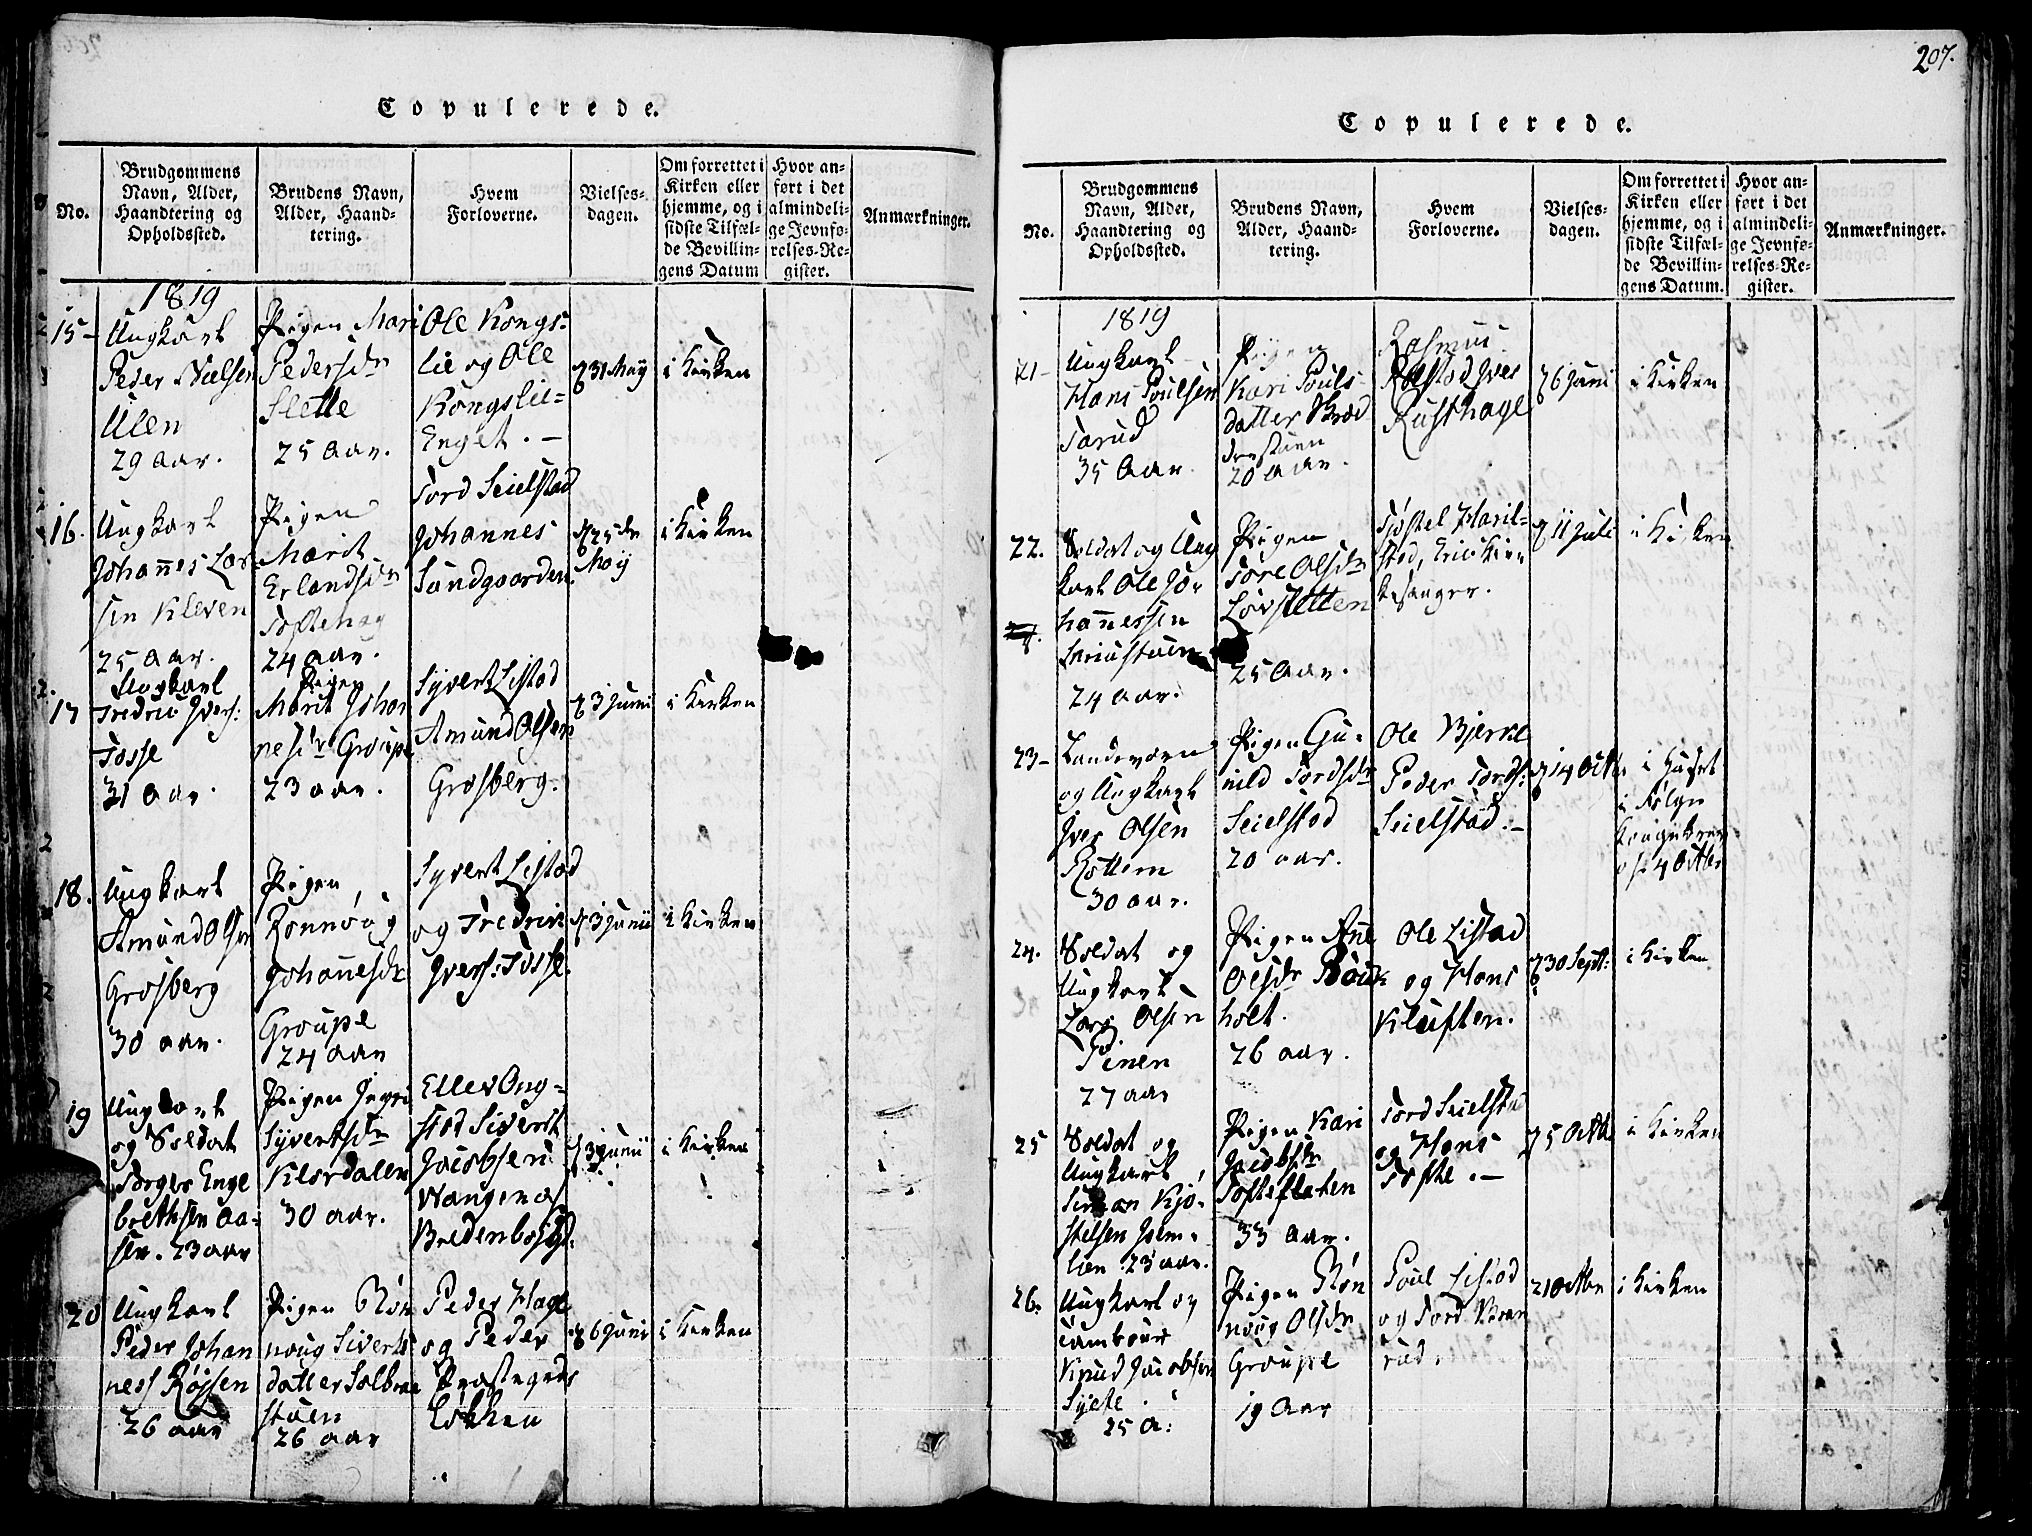 Copulerede.
No.
Brudgommens
Navn, Alder,
Haandtering og
Opholdssted.
Brudens Navn,
Alder, Haand-
tering.
Hvem
Forloverne.
Vielses-
dagen.
Om forrettet i
Kirken eller
hjemme, og i
sidste Tilfæl-
de Bevillin-
gens Datum
Hvor an-
ført i det
almindeli-
ge Jevnfø-
relses-Re-
gister.
Anmærkninger.
1819
15-
Ungkarl
Peder Nielsen
Ulen
29 Aar.
Pigen Mari
Pedersdr
Slette
25 Aar.
Ole Kongs-
lie og Ole
Kongslie-
Enget. -
31 May
i Kirken
16.
Ungkarl
Johannes Lar-
sen Kleven
25 Aar.
Pigen
Marit
Erlandsdr
Toftehag
24 aar.
Tord Seielstad
Johannes
Sundgaarden
25de
May
i Kirken
17
Ungkarl
Fredric Ivers:
Fosse
31 Aar.
Pigen
Marit Johan
nesdr Groupe
23 aar.
Syvert Listad
Amund Olsen
Grosberg.
3 Junii
i Kirken
18.
Ungkarl
Amund Olsen
Grosberg
30 aar.
Pigen
Ronnøug
Johanesdr
Groupe
24 aar
Syvert Listad
og Fredrik
Ivers: Fosse.
3 Junii
i Kirken
19
Ungkarl
og Soldat
Torger Enge
brethsen Aa-
sen. 23 aar
Pigen Ingri
Syvertsdr
Klevdalen
30 aar.
Ellev Ong-
stad Sivert
Jacobsen
Wangen af
Bredenbøygd.
3 Junii
i Kirken
20
Ungkarl
Peder Johan
ness Røssen
26 aar
Pigen Røn
noug Siverts
datter Solbrae
stuen
26 aar
Peder Hage
og Peder
Præstegrds
Løkken
6 Juni
i Kirken
207.
Copulerede.
No.
Brudgommens
Navn, Alder,
Haandtering og
Opholdssted.
Brudens Navn,
Alder, Haand-
tering.
Hvem
Forloverne.
Vielses-
dagen.
Om forrettet i
Kirken eller
hjemme, og i
sidste Tilfæl-
de Bevillin-
gens Datum.
Hvor an-
ført i det
almindeli-
ge Jevnfø-
relses-Re-
gister.
Anmærkninger.
1819
21-
Ungkarl
Hans Poulsen
Forud
35 Aar.
Pigen
Kari Pouls-
datter
20 Aar.
Rasmus
Rustad Iver
Rusthage
6 Juni
i Kirken
22.
Soldat og Ung
karl Ole Jo-
hannessen
24 aar.
Pigen
Tore Olsdr
Lovsletten
25 Aar.
Kjøstel Haril-
stad, Eric
11 Juli
i Kirken
23-
Landeværn
og Ungkarl
Iver Olsen
Rottem
30 aar.
Pigen Gu-
nild Tordsdr
Seielstad
20 aar.
Ole Bjerke
Peder Tords:
Seielstad. -
14 Octbr
i Huset
i Følge
4 Octbr
24.
Soldat og
Ungkarl
Lars Olsen
Pinen
27 aar
Pigen Ane
Olsdr
holt.
26 aar.
Ole Listad
og Hans
Kluften.
30 Sept:
i Kirken
25
Soldat og
Ungkarl
Siman Kjø-
stelsen
lien 23 aar.
Pigen Kari
Jacobsdr
Tofteflaten
33 Aar.
Tord Seielstad
og Hans
Tofte. -
5 Octbr
i Kirken
26.
Ungkarl og
Tambour
Knud Jacobsen
Syete
25 A:
Pigen Røn
noug Olsdr
Groupe
19 Aar
Poul Listad
og Tord Bran
rud.
21 Octbr
i Kirken